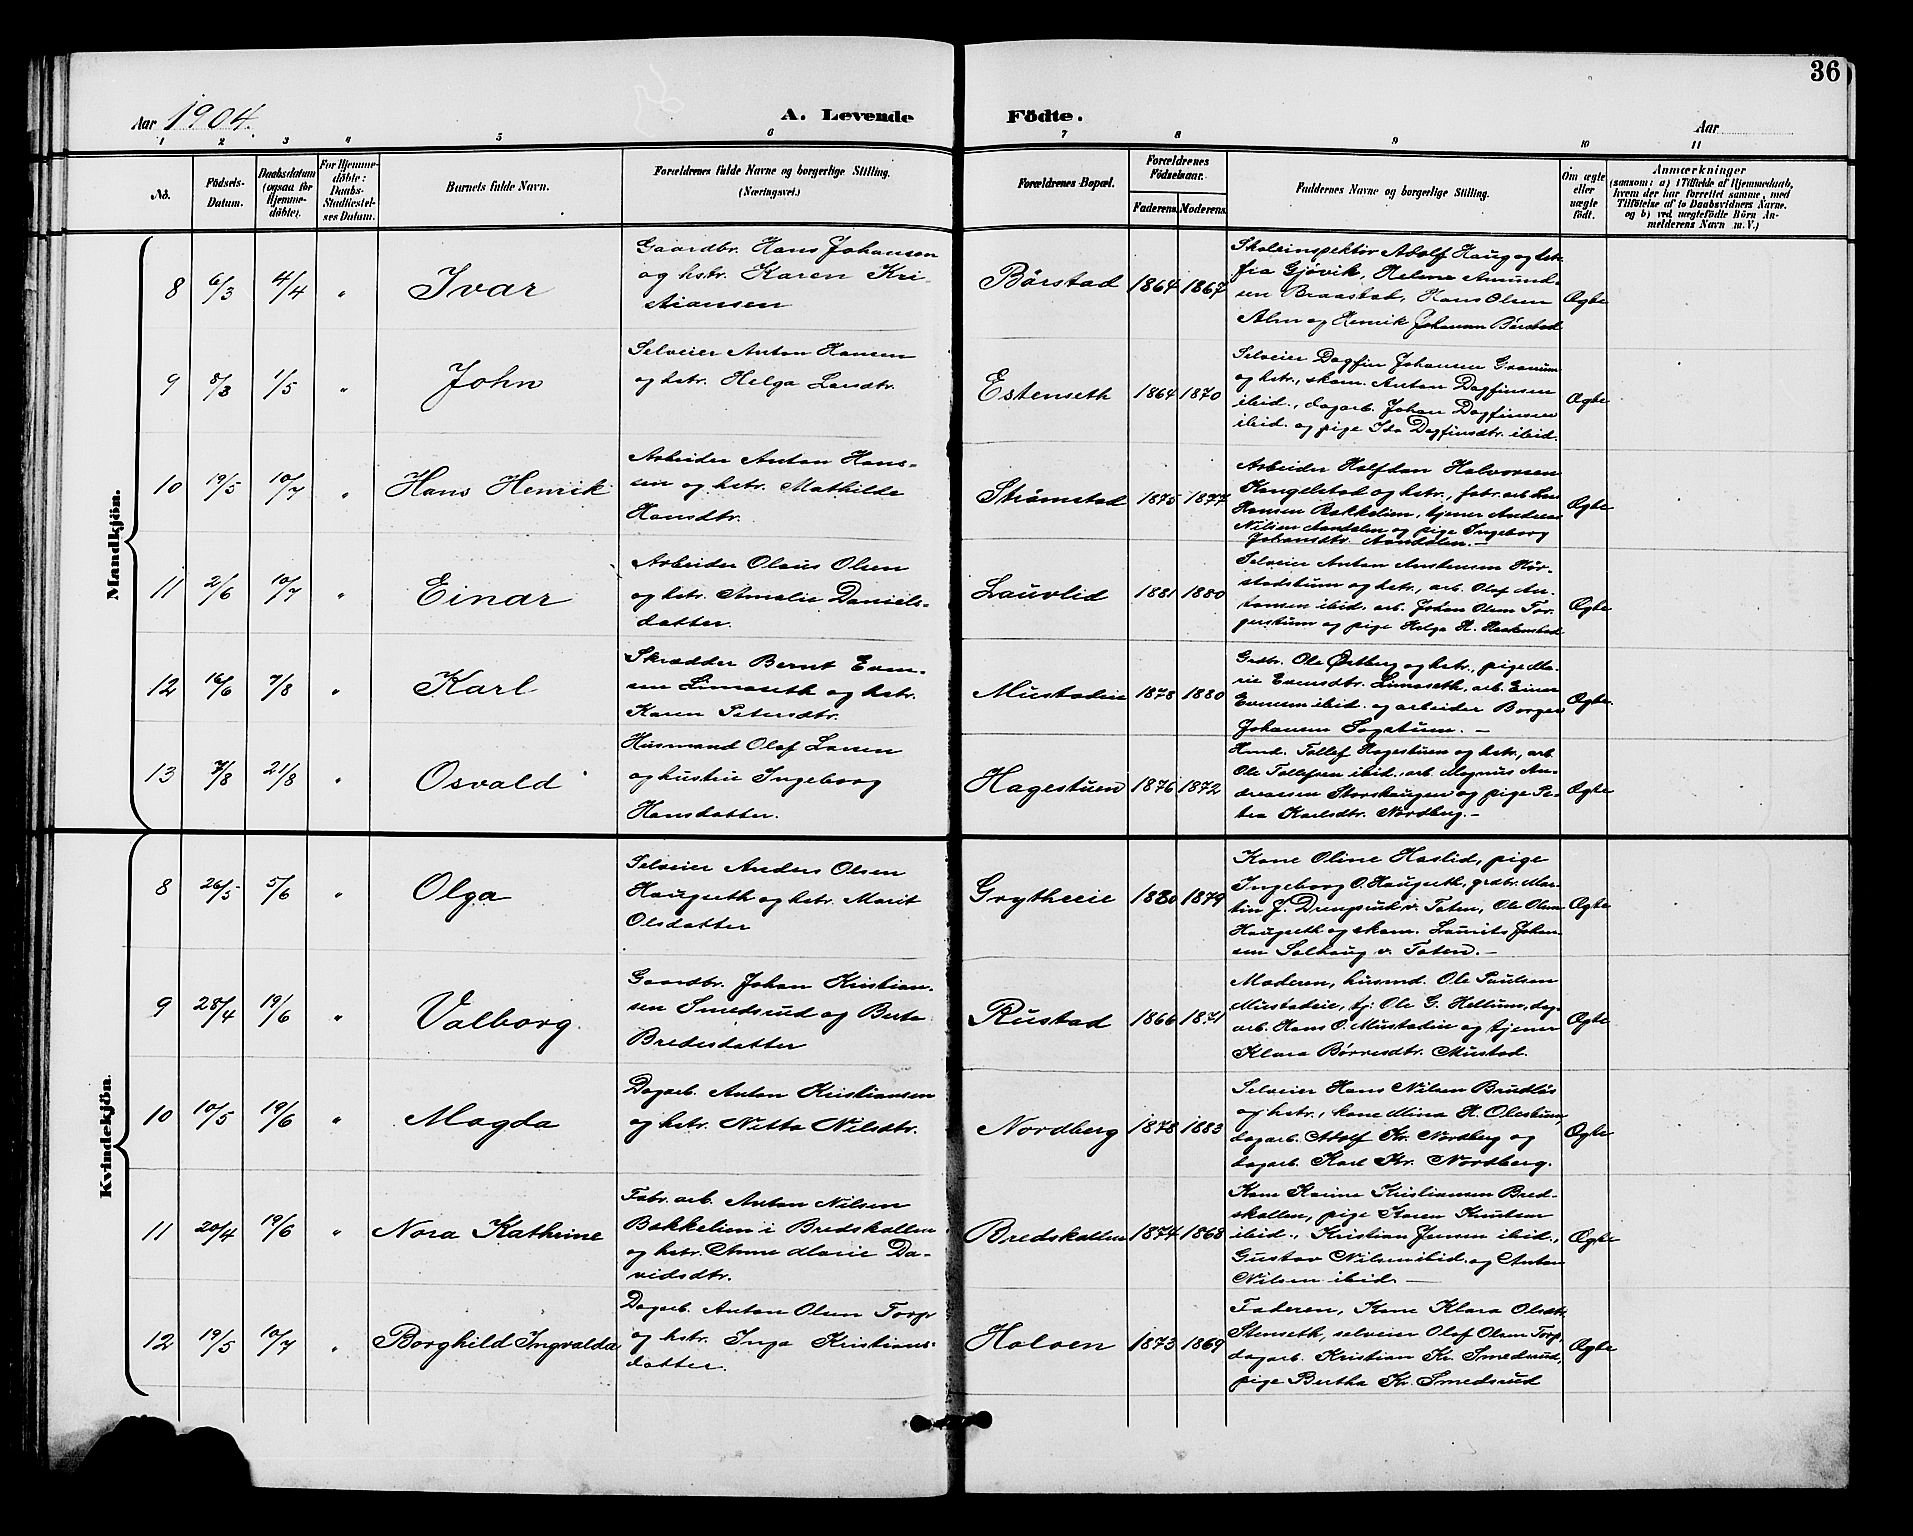 36
Aar 1904.
A. Levende
Födte.
Aar
1 2 3 4 5 6 7 8 9 10 11
No.
Födsels-
Datum.
Daabsdatum
(ogsaa for
Hjemme-
döbte).
For Hjemme-
döbte:
Daabs-
Stadfæstel-
ses Datum.
Barnets fulde Navn.
Forældrenes fulde Navne og borgerlige Stilling.
(Næringsvei.)
Forældrenes Bopæl.
Forældrenes
Födselsaar.
Faderens.
Moderens.
Faddernes Navne og borgerlige Stilling.
Om ægte
eller
uægte
födt.
Anmærkninger
(saasom: a) i Tilfælde af Hjemmedaab,
hvem der har forrettet samme, med
Tilföielse af to Daabsvidners Navne.
og b) ved uægtefödte Börn An-
melderens Navn m. V.)
Mandkjön.
8 6/3 4/4 " Ivar
Gaardbr. Hans Johansen
og hstr. Karen Kri-
stiansen
Børstad 1864 1867
Skoleinspektør Adolf Haug og hstr.
fra Gjøvik, Helene Amund-
sen Braastad, Hans Olsen
Alm og Henrik Johansen Børstad
Ægte
9 8/3 1/5 " John
Selveier Anton Hansen
og hstr. Helga Larsdtr.
Estenseth 1864 1870
Selveier Dagfin Johansen Granum
og hstr., skom. Anton Dagfinsen
ibid., dagarb. Johan Dagfinsen
ibid. og pige Ida Dagfinsdtr. ibid.
Ægte
10 19/5 10/7 " Hans Henrik
Arbeider Anton Hans-
sen og hstr. Mathilde
Hansdtr.
Strømstad 1875 1877
Arbeider Halfdan Halvorsen
Kangelstad og hstr., fabr. arb.
Hansen Bakkelien, tjener Andreas
Nilsen Aandalen og pige Ingeborg
Johansdtr. Aandalen. —
Ægte
11 2/6 10/7 " Einar
Arbeider Olaus Olsen
og hstr. Amalie Daniels-
datter.
Lauvlid 1881 1880
Selveier Anton Anstensen
og hstr., arb. Olaf An-
tonsen ibid. arb. Johan Olsen
og pige Helga H.
Ægte
12 16/6 7/8 " Karl
Skrædder Bernt Even-
sen Limaseth og hstr.
Karen Petersdtr.
Mustadeie 1878 1880
Grdbr. Ole Østberg og hstr., pige Ma-
rie Evensdtr. Limaseth, arb. Einar
Evensen ibid. og arbeider Borger
Johansen Sogstuen. —
Ægte
13 7/8 21/8 " Osvald
Husmand Olaf Larsen
og hustru Ingeborg
Hansdatter.
Hagestuen 1876 1872
Hmd. Tollef Hagestuen og hstr., arb.
Ole Tollefsen ibid., arb. Magnus An-
dreassen Storhaugen og pige Pe-
tra Karlsdtr. Nordberg. —
Ægte
Kvindekjön.
8 26/5 5/6 " Olga
Selveier Anders Olsen
Haugseth og hstr. Marit
Olsdatter
Grytheeie 1880 1879
Kone Oline Haslid, pige
Ingeborg O. Haugseth, grdbr. Mar-
tin J. v. Toten, Ole Olsen
Haugseth og skom. Laurits Johan-
sen Solhaug v. Toten. —
Ægte
9 28/4 19/6 " Valborg.
Gaardbr. Johan Kristian-
sen Smedsrud og Berte
Bredesdatter
Rustad 1866 1871
Moderen, husmd. Ole Paulsen
Mustadeie, tj. Ole G. Hellum, dag-
arb. Hans O. Mustadeie og tjener
Klara Børresdtr. Mustad.
Ægte
10 10/5 19/6 " Magda
Dagarb. Anton Kristiansen
og hstr. Nitta Nilsdtr.
Nordberg 1878 1883
Selveier Hans Nilsen Brudlös
og hstr., kone Mina H. Olestuen,
dagarb. Adolf Kr. Nordberg og
dagarb. Karl Kr. Nordberg.
Ægte
11 20/4 19/6 " Nora Kathrine
Fabr. arb. Anton Nilsen
Bakkelien i Bredskallen
og hstr. Anne Marie Da-
vidsdtr.
Bredskallen 1874 1868
Kone Karine Kristiansen Bred-
skallen, pige Karen Knutsen
ibid., Kristian Jensen ibid.,
Gustav Nilsen ibid. og Anton
Nilsen ibid. —
Ægte
12 19/5 10/7 " Borghild Ingvalda
Dagarb. Anton Olsen Torp
og hstr. Inga Kristians-
datter.
Holoen 1873 1869
Faderen, Kone Klara Olsdtr.
Stenseth, selveier Olaf Olsen Torp,
dagarb. Kristian Kr. Smedsrud,
pige Bertha Kr. Smedsrud
Ægte